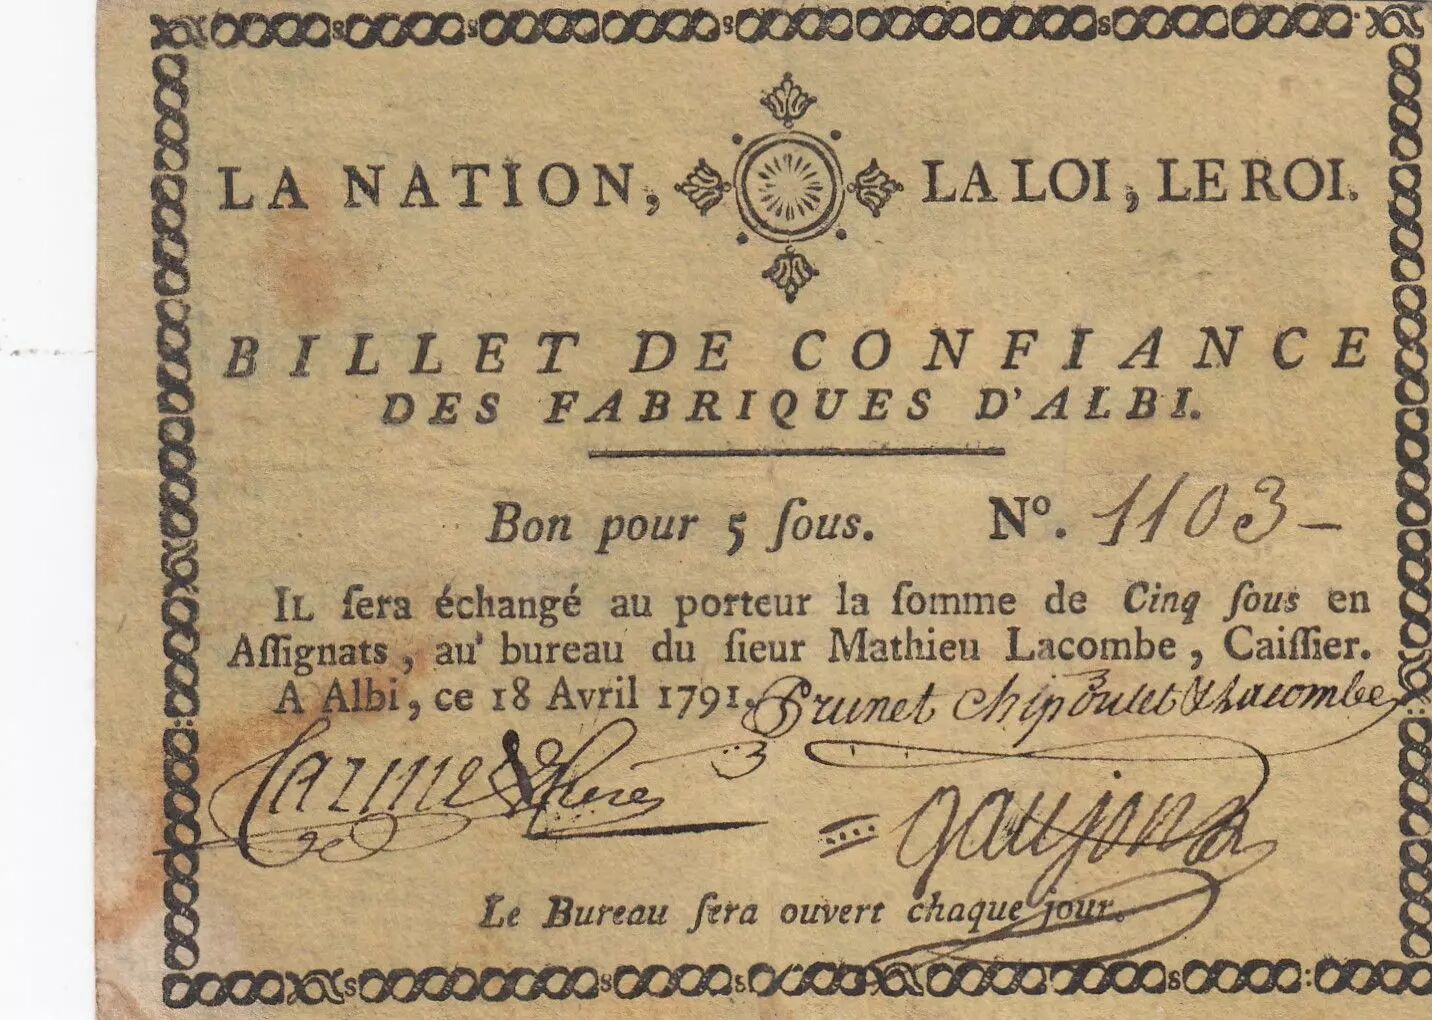 LA NATION, LA LOI, LE ROI.
BILLET DE CONFIANCE
DES FABRIQUES D'ALBI.
Bon pour 5 ſous. Nº. 1103
IL ſera échangé au porteur la ſomme de Cinq ſous en
Aſſignats, au' bureau du ſieur Mathieu Lacombe, Caiſſier.
A Albi, ce 18 Avril 1791. Prunet Chipoulet & Lacombe
gaujona
Le Bureau ſera ouvert chaque jour.